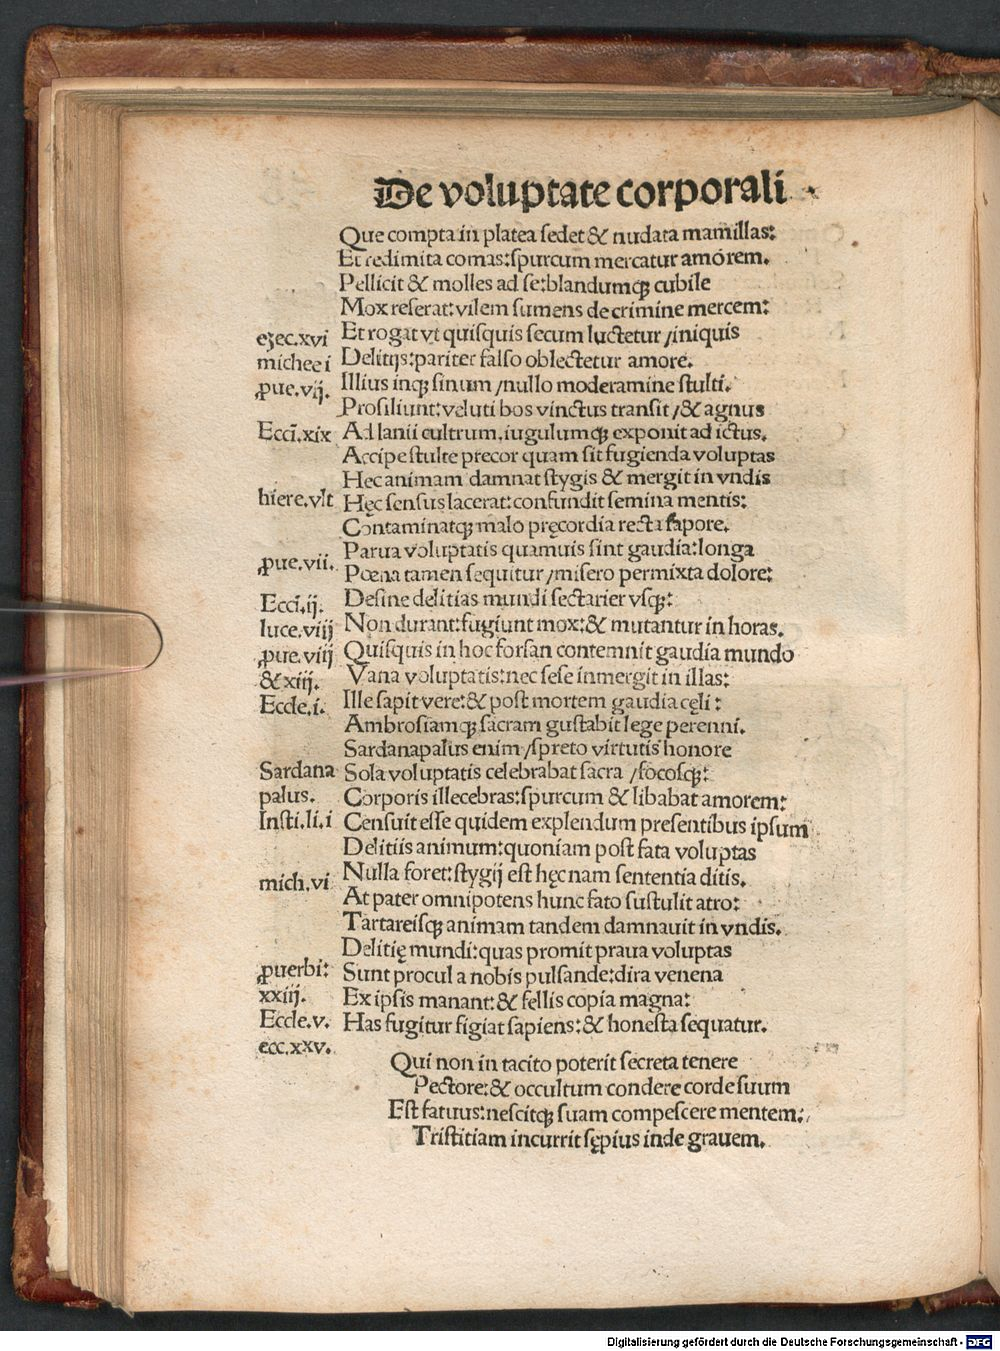 De voluptate corporali
Que compta in platea sedet & nudata mamillas:
Et redimita comas: spurcum mercatur amorem.
Pellicit & molles ad se: blandumqꝫ cubile
Mox reserat: vilem sumens de crimine mercem:
ezec.xvi Et rogat vt quisquis secum luctetur /iniquis
michee i Delitijs: pariter falso oblectetur amore.
ꝓue.vij. Illius inqꝫ sinum /nullo moderamine stulti.
Prosiliunt: veluti bos vinctus transit /& agnus
Ecci̅.xix Ad lanii cultrum. iugulumqꝫ exponit ad ictus.
Accipe stulte precor quam sit fugienda voluptas
Hec animam damnat stygis & mergit in vndis
hiere.vlt Hęc sensus lacerat: confundit semina mentis:
Contaminatqꝫ malo pręcordia recta sapore.
Parua voluptatis quamuis sint gaudia: longa
ꝓue.vii. Pœna tamen sequitur /misero permixta dolore:
Ecci̅.ij. Desine delitias mundi sectarier vsqꝫ:
luce.viij Non durant: fugiunt mox: & mutantur in horas.
ꝓue.viij Quisquis in hoc forsan contemnit gaudia mundo
& xiij. Vana voluptatis: nec sese inmergit in illas:
Eccle.i. Ille sapit vere: & post mortem gaudia cęli:
Ambrosiamqꝫ sacram gustabit lege perenni.
Sardanapalus enim /spreto virtutis honore
Sardana Sola voluptatis celebrabat sacra /focosqꝫ:
palus. Corporis illecebras: spurcum & libabat amorem:
Insti.li.i Censuit esse quidem explendum presentibus ipsum
Delitiis animum: quoniam post fata voluptas
mich.vi Nulla foret: stygij est hęc nam sententia ditis.
At pater omnipotens hunc fato sustulit atro:
Tartareisqꝫ animam tandem damnauit in vndis.
Delitię mundi: quas promit praua voluptas
ꝓuerbi: Sunt procul a nobis pulsande: dira venena
xxiij. Ex ipsis manant: & fellis copia magna:
Eccle.v. Has fugitur figiat sapiens: & honesta sequatur.
ecc.xxv.
Qui non in tacito poterit secreta tenere
Pectore: & occultum condere corde suum
Est fatuus: nescitqꝫ suam compescere mentem:
Tristitiam incurrit sępius inde grauem.
Digitalisierung gefördert durch die Deutsche Forschungsgemeinschaft - DFG